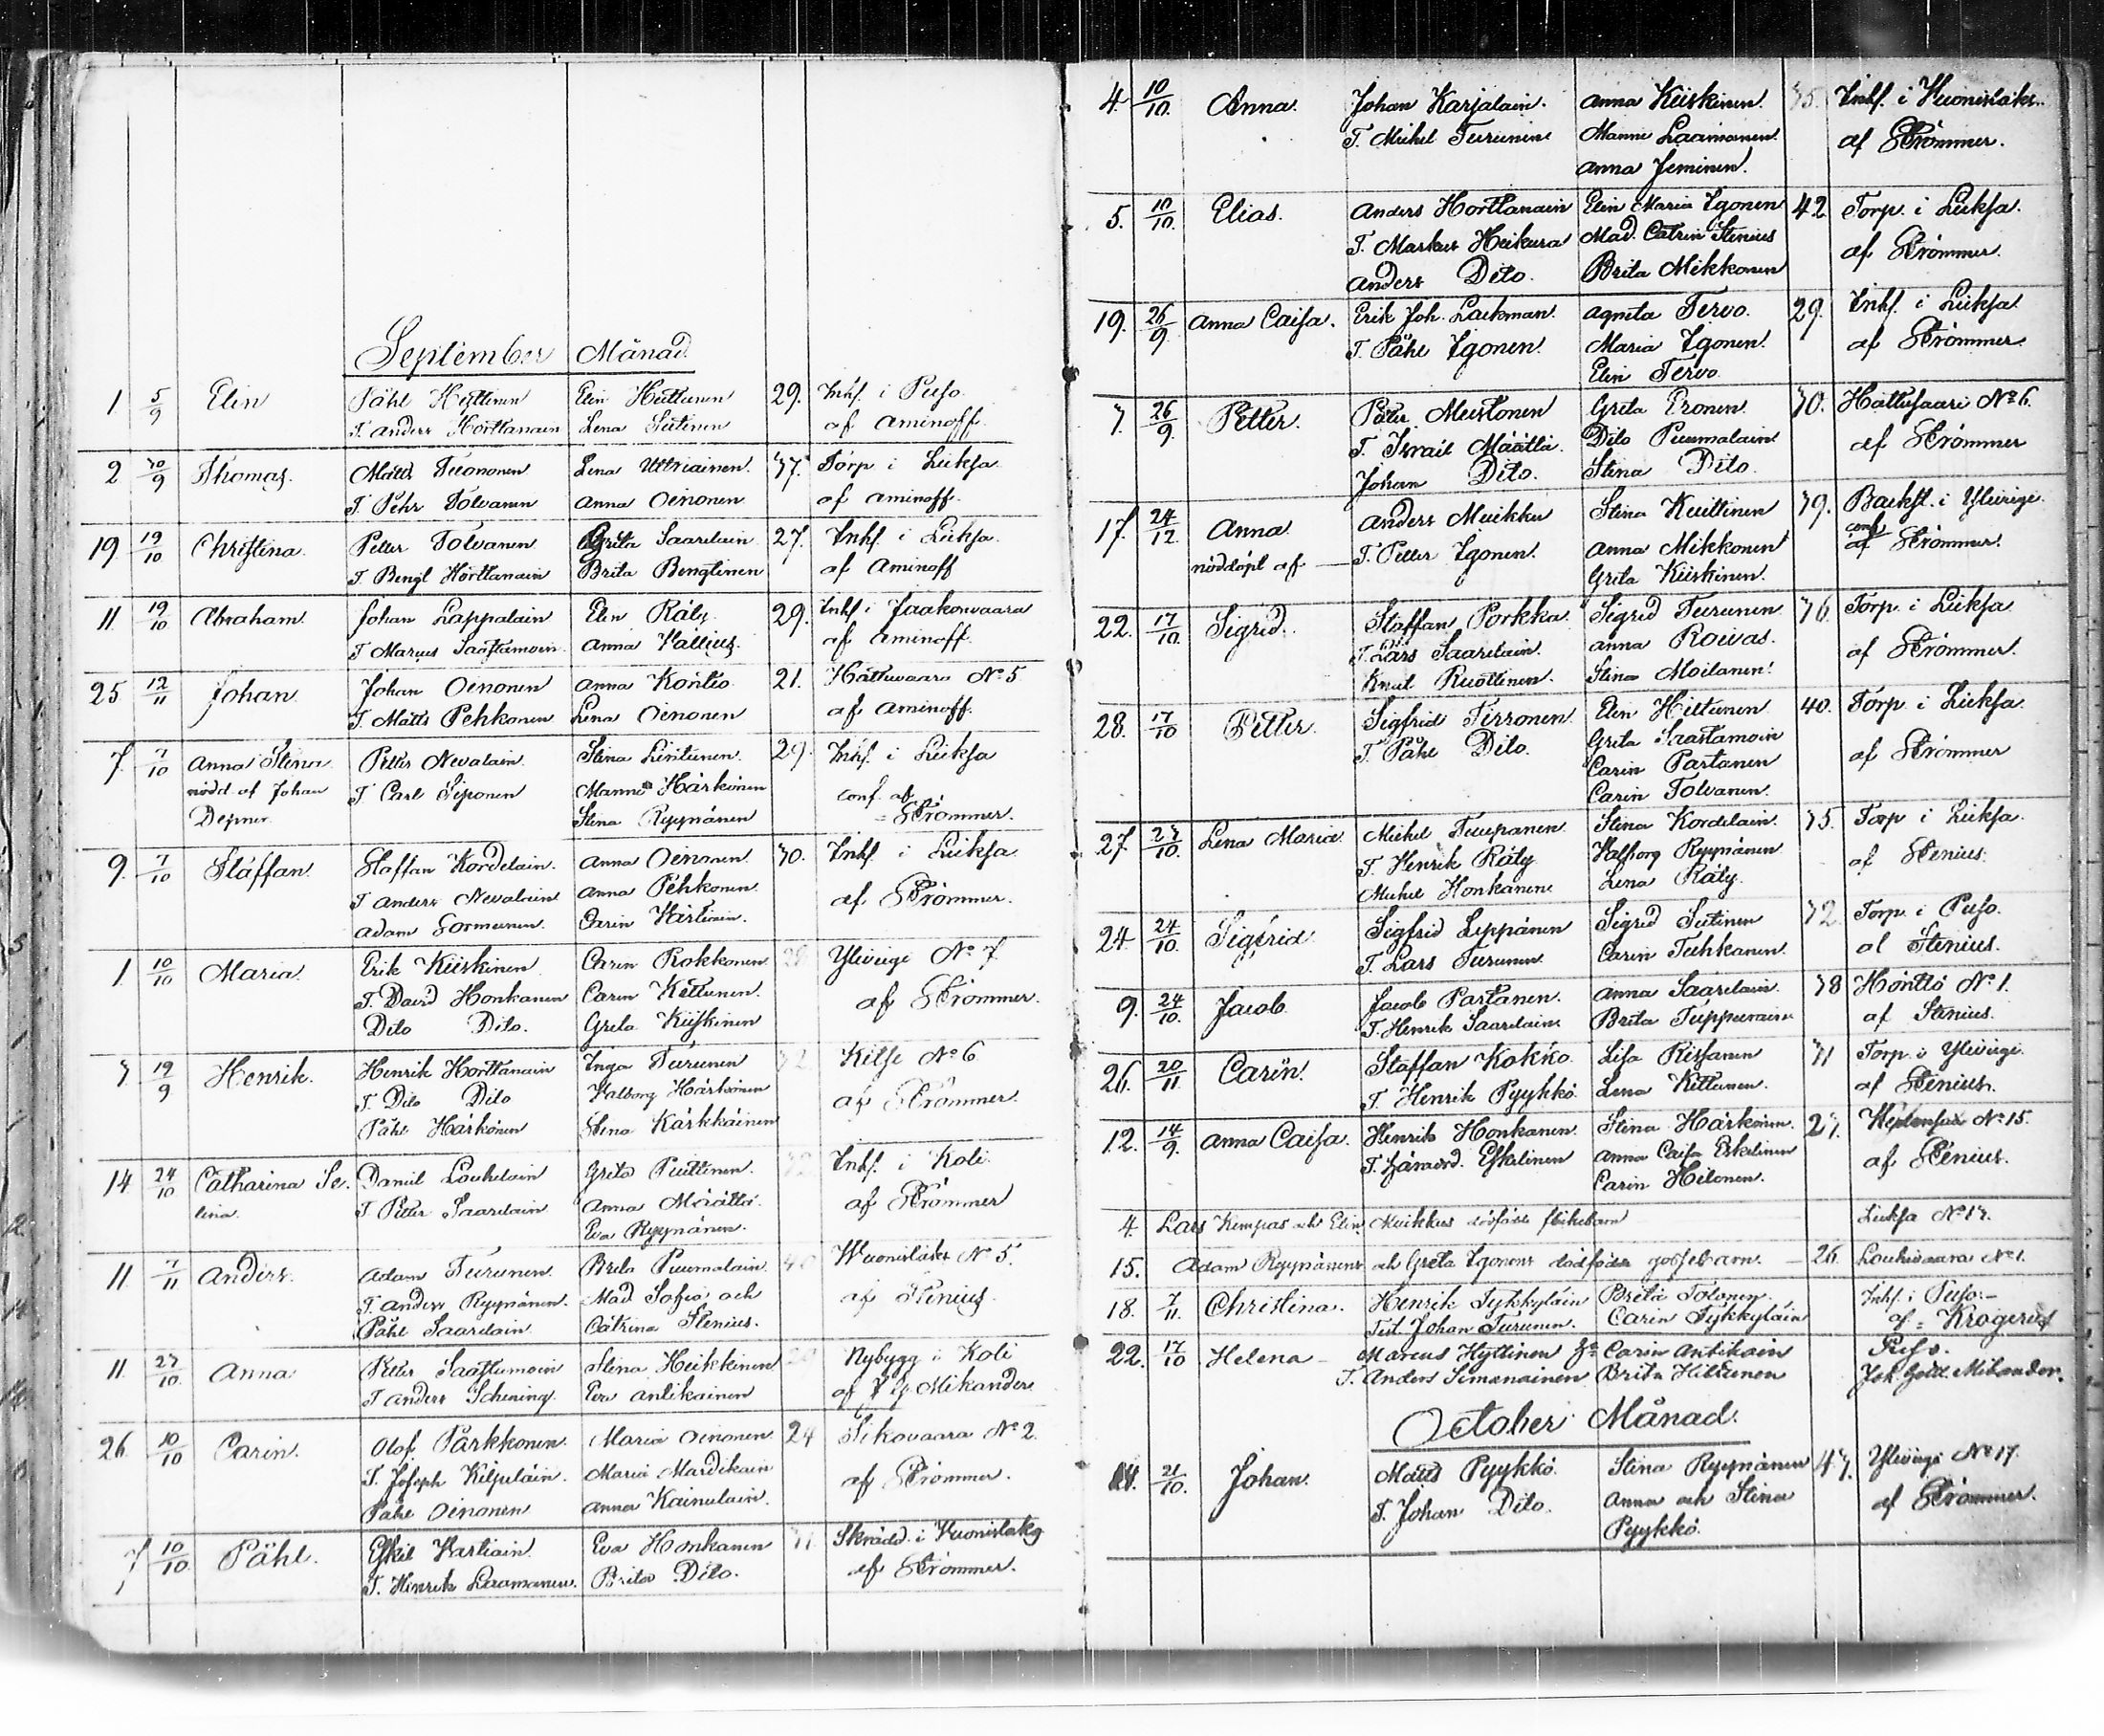 September Månad
1 5/9 Elin Påhl Hyttinen Elin Hiltunen 29. Inhs. i Puso
T. Anders Horttanain Lena Siitinen af Aminoff.
2 30/9 Thomas. Matts Tuononen Lena Uttriainen. 37. Torp. i Lieksa
T. Pehr Tolvanen Anna Oinonen af Aminoff.
19 19/10 Christina. Petter Tolvanen Brita Saarelain 27. Inhs. i Lieksa.
T. Bengt Horttanain Brita Bengtinen af Aminoff
11. 19/10 Abraham. Johan Lappalain Elin Räty 29. Inhs. i Jaakonvaara
T. Marcus Saastamoin. Anna Vallius. af Aminoff.
25 12/11 Johan. Johan Oinonen Anna Kontio 21. Hattuvaara No 5
T. Matts Pehkonen Lena Oinonen af Aminoff.
7. 7/10 Anna Stina Petter Nevalain. Stina Lintunen. 29. Inhs. i Lieksa
nödd. af Johan T. Carl Piponen Manna Härkönen conf. af
Depner. Stina Ryynänen Strömmer.
9. 7/10 Staffan. Staffan Kordelain. Anna Oinonen 30. Inhs. i Lieksa
T. Anders Nevalain Anna Pehkonen af Strömmer.
Adam Gormunen. Carin Kärtiain.
1. 10/10 Maria. Erik Kiiskinen Carin Rokkonen Yliviegi No 7.
T. David Honkanen Carin Kettunen. af Strömmer.
Dito Dito. Greta Kiiskinen
7. 19/9 Henrik. Henrik Horttanain Inga Turunen Kitsi No 6
T. Dito Dito Valborg Härkönen af Strömmer.
Påhl Härkönen Stina Kärkkäinen
14. 24/10 Catharina Se- Daniel Louhelain Greta Puittinen. Inhs. i Koli.
lina. T. Petter Saarelain Anna Määttä. af Strömmer
Eva Ryynänen.
11. 7/11 Anders. Adam Turunen. Brita Puumalain. 40 Wuonislaks No 5.
T. Anders Ryynänen. Mad Sofia och af Stenius.
Påhl Saarelain Catrina Stenius.
11. 27/10 Anna Petter Saastamoin Stina Heikkinen Nybygg i Koli
T. Anders Schening. Eva Antikainen af Mikander
26. 10/10 Carin. Olof Parkkonen. Maria Oinonen 24 Sikovaara No 2.
T. Joseph Kilpeläin. Maria Mardikain af Strömmer.
Påhl Oinonen Anna Kainulain.
7 10/10 Påhl. Eskil Kartiain. Eva Honkanen Skrädd. i Vuonislaks
T. Hinrik Laamanen. Brita Dito. af Strömmer.
4. 10/10. Anna. Johan Karjalain. Anna Kiiskinen. 35. Inhs. i Vuonislaks.
T. Mickel Turunen Manna Laamanen. af Strömmer.
Anna Jeminen.
5. 10/10. Elias. Anders Horttanain Elin Maria Igonen 42. Torp. i Lieksa.
T. Markus Heikura Mad. Catrin Stenius af Strömmer.
Anders Dito. Brita Mikkonen
19. 26/9 Anna Caisa. Erik Joh. Lackman. Agneta Tervo. 29. Inhs. i Lieksa.
T. Påhl Igonen. Maria Igonen. af Strömmer.
Elin Tervo.
7. 26/9. Petter. Peter Mustonen Greta Eronen. 30. Hattusaari No 6.
T. Israel Määttä. Dito Puumalain. af Strömmer
Johan Dito. Stina Dito.
17. 24/12. Anna. Anders Muikku Stina Kuittinen 39. Backst. i Yliviegi.
nöddöpt af — T. Petter Igonen. Anna Mikkonen conf. af Strömmer.
Greta Kiiskinen.
22. 17/10. Sigrid. Staffan Porkka Sigrid Turunen 36. Torp. i Lieksa
T. Lars Saarelain. Anna Roivas. af Strömmer.
Knut Ruottinen. Stina Moilanen.
28. 17/10 Petter. Sigfrid Tirronen. Elin Hiltunen 40. Torp. i Lieksa.
T. Påhl Dito. Greta Saastamoin af Strömmer
Carin Partanen
Carin Tolvanen.
27 27/10. Lena Maria Mickel Tuupanen. Stina Kordelain. 35. Torp i Lieksa.
T. Henrik Räty Valborg Ryynänen af Stenius.
Mickel Honkanen Lena Räty.
24 24/10. Sigfrid. Sigfrid Leppänen Sigrid Siitinen 32. Torp. i Puso.
T. Lars Turunen. Carin Tuhkanen. al Stenius.
9. 24/10. Jacob. Jacob Partanen. Anna Saarelain. 38 Höntlö No 1.
T. Henrik Saarelain Brita Tuppurain af Stenius.
26. 20/11. Carin. Staffan Kokko. Lisa Rissanen 31 Torp. i Yliviegi
T. Henrik Pyykkö. Lena Kettunen. af Stenius.
12. 14/9. Anna Caisa. Henrik Honkanen. Stina Härkönen. 27. No 15.
T. Eskelinen Anna Caisa Eskelinen af Stenius.
Carin Hilonen.
4. Lars Kempas och Elin Muikkus dödfödde flickebarn Lieksa No 17.
15. Adam Ryynänens och Greta Igonens dödfödde gossebarn. — 26. Louhivaara No 1.
18. 7/11. Christina. Henrik Tykkyläin Brita Tolonen. Inhs. i Puso.
Test. Johan Turunen. Carin Tykkyläin af Krogerus
22. 17/10 Helena — Marcus Hyttinen Carin Antikain Puso.
T. Anders Simanainen Brita Hiltunen Joh. Gottl. Mikander.
October Månad.
21/10. Johan. Matts Pyykkö. Stina Ryynänen 47. Yliviegi No 17.
T. Johan Dito. Anna och Stina af Strömmer.
Pyykkö.